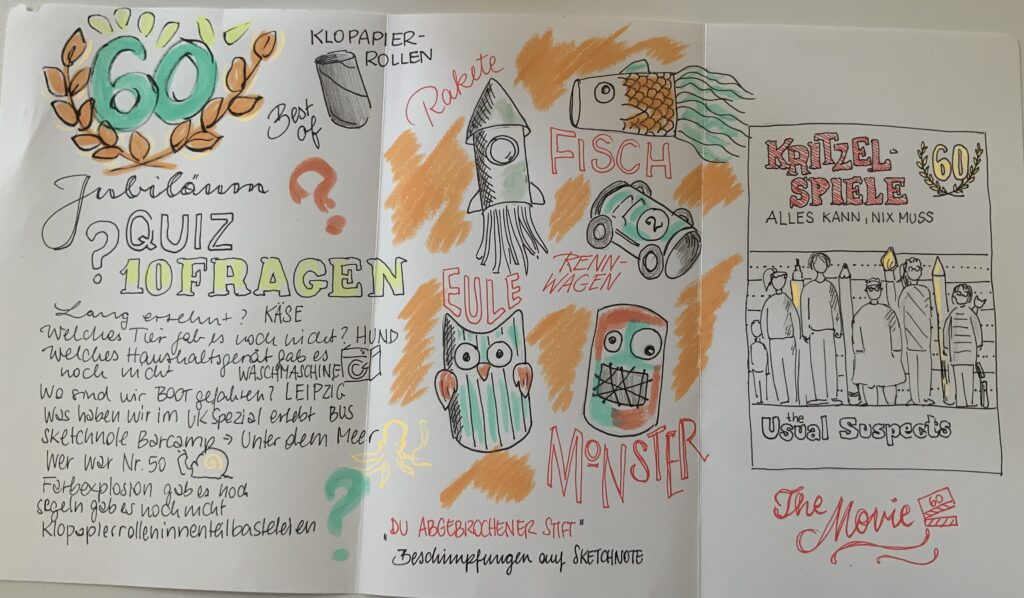 60
Jubiläum
QUIZ
10 FRAGEN
Lang ersehnt? KÄSE
Welches Tier gab es noch nicht? HUND
Welches Haushaltsgerät gab es
noch nicht WASCHMASCHINE
Wo sind wir BOOT gefahren? LEIPZIG
Was haben wir im UK Spezial erlebt BUS
Sketchnote Barcamp → Unter dem Meer
Wer war Nr. 50
Farbexplosion gab es noch
segeln gab es noch nicht
Klopapierrolleninnenteilbasteleien
KLOPAPIER-
ROLLEN
Best
of
Rakete
FISCH
2
RENN-
WAGEN
EULE
MONSTER
"DU ABGEBROCHENER STIFT"
Beschimpfungen auf SKETCHNOTE
KRITZEL-
SPIELE
60
ALLES KANN, NIX MUSS
the
Usual Suspects
The Movie
60